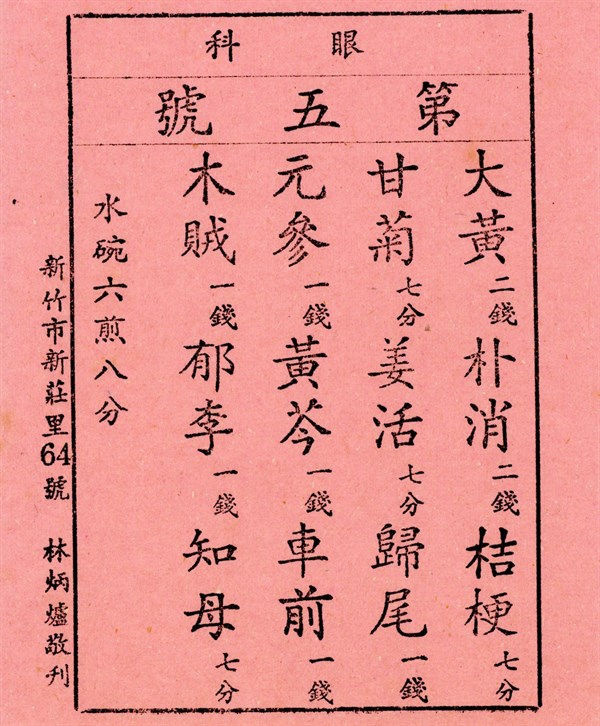 眼科
第五號
大黃二錢 朴消二錢 桔梗七分
甘菊七分 姜活七分 歸尾一錢
元參一錢 黃芩一錢 車前一錢
木賊一錢 郁李一錢 知母七分
水碗六煎八分
新竹市新莊里64號 林炳爐敬刋